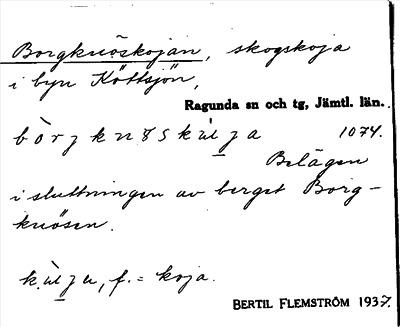 Borgknöskojan, skogskoja
i byn Köttsjön,
Ragunda sn och tg, Jämtl. län.
1074.
Belägen
i sluttningen av berget Borg-
knösen.
f. = koja.
BERTIL FLEMSTRÖM 1937.